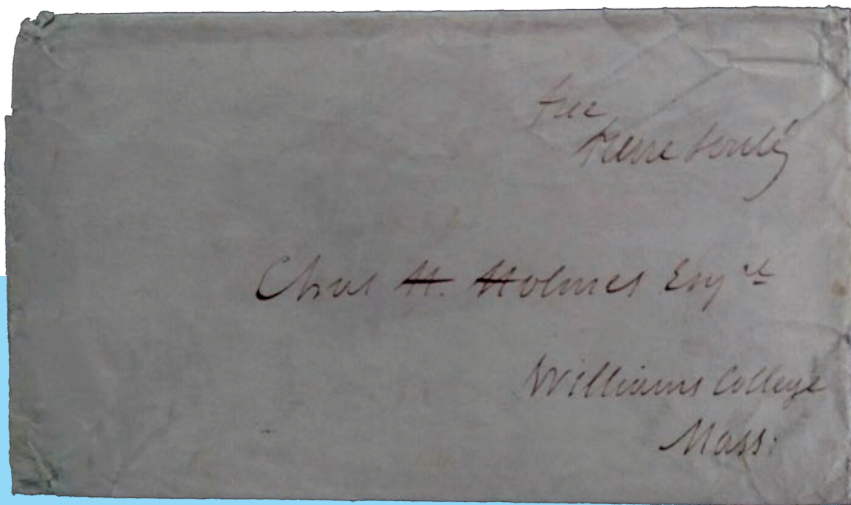 free
Pierre Soulé
Chas H. Holmes Esqre
Williams College
Mass.